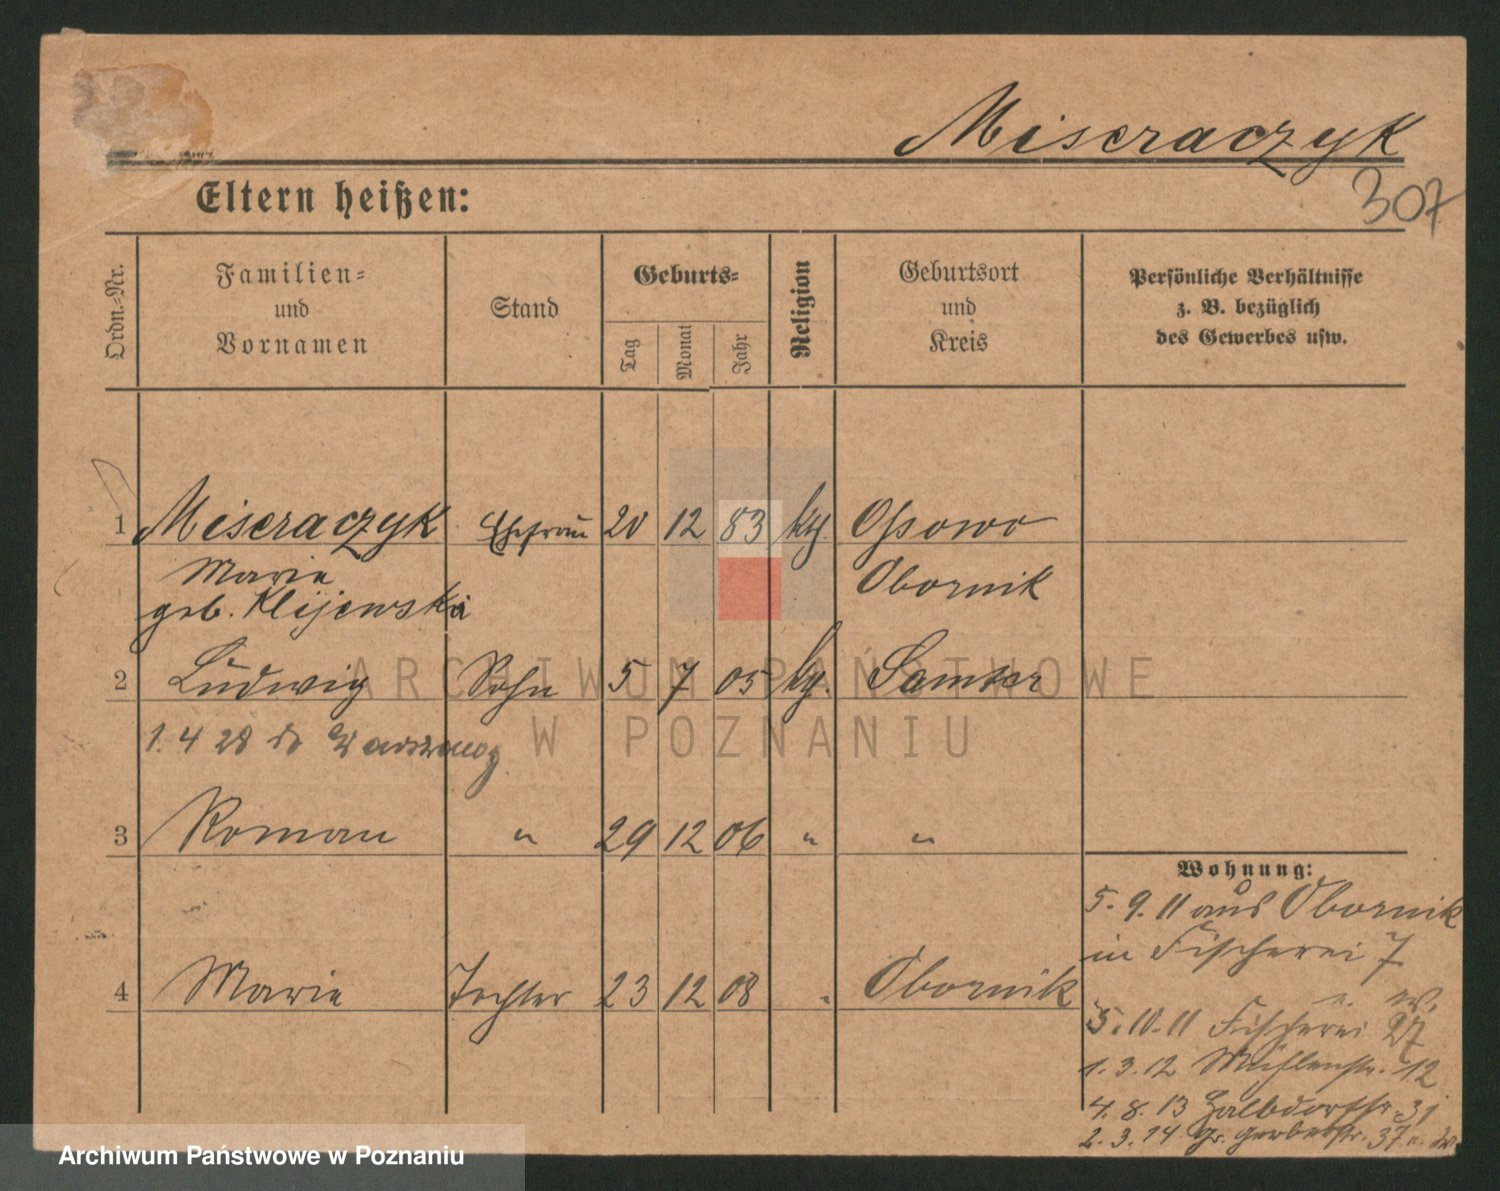 Miseraczyk
307
Eltern heißen:
Ordn.-Nr.
Familien-
und
Vornamen
Stand
Geburts-
Tag
Monat
Jahr
Religion
Geburtsort
und
Kreis
Persönliche Verhältnisse
z. B. bezüglich
des Gewerbes usw.
1 Miseraczyk Ehefrau 20 12 83 Ossowo
Marie Obornik
geb. Klijewska
2 Ludwig Sohn 5 7 05 Samter
1. 4 28 do
3 Roman " 29 12 06 " "
4 Marie Tochter 23 12 08 " Obornik
Wohnung:
5. 9. 11 aus Obornik
in Fischerei 7
5. 10. 11 Fischerei 27
1. 3. 12 Mühlenstr. 12
4. 8. 13 Halbdorfstr. 31
2. 3. 14 Gr. Gerberstr. 37
ARCHIWUM PAŃSTWOWE
W POZNANIU
Archiwum Państwowe w Poznaniu